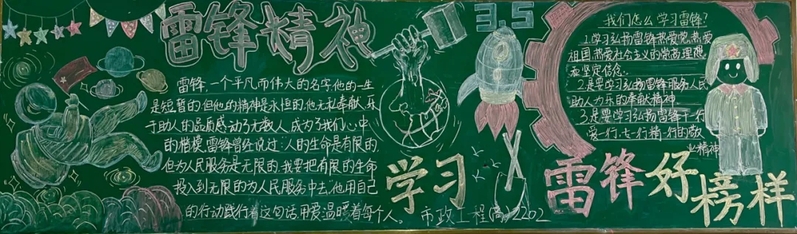 雷锋精神
雷锋,一个平凡而伟大的名字,他的一生
是短暂的,但他的精神是永恒的,他无私奉献,乐
于助人的品质感动了无数人,成为了我们心中
的楷模,雷锋曾经说过:人的生命是有限的
但为人民服务是无限的,我要把有限的生命
投入到无限的为人民服务中去,他用自己
的行动践行着这句话,用爱温暖着每个人。
市政工程(高)2202
3.5
学习
我们怎么学习雷锋?
1.学习弘扬雷锋热爱党,热爱
祖国,热爱社会主义的崇高理想
和坚定信念
2.是要学习弘扬雷锋服务人民
助人为乐的奉献精神
3.是要学习弘扬雷锋干一行
爱一行,
精一行的敬
业精神
雷锋好榜样